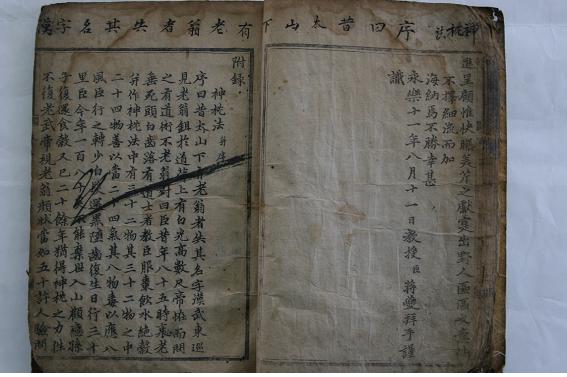 神枕法 序曰昔太山下有老翁者失其名字漢
進呈顧惟快睹美芹之獻實出野人區區之
不擇細流而加
海納焉不勝幸甚
永樂十一年八月十一日教授臣蔣夔拜手謹
識
附録
神枕法 并序
序曰昔太山下有老翁者失其名字漢武東巡
見老翁鋤於道背上有白光高數尺帝怪而問
之有道術不老翁對曰臣昔年八十五時衰老
垂死頭白齒落有道士者教臣服棗飲水絶穀
并作神枕法中有三十二物其三十二物之中
二十四物善以當二十四氣其八物毒以應八
風臣行之轉少白髮還黑墮齒復生日行三十
里臣今年一百八十矣不能棄世入山顧戀孫
子復還食穀又已二十餘年猶得神枕之力往
不復老武帝視老翁顏狀當如五十許人驗問